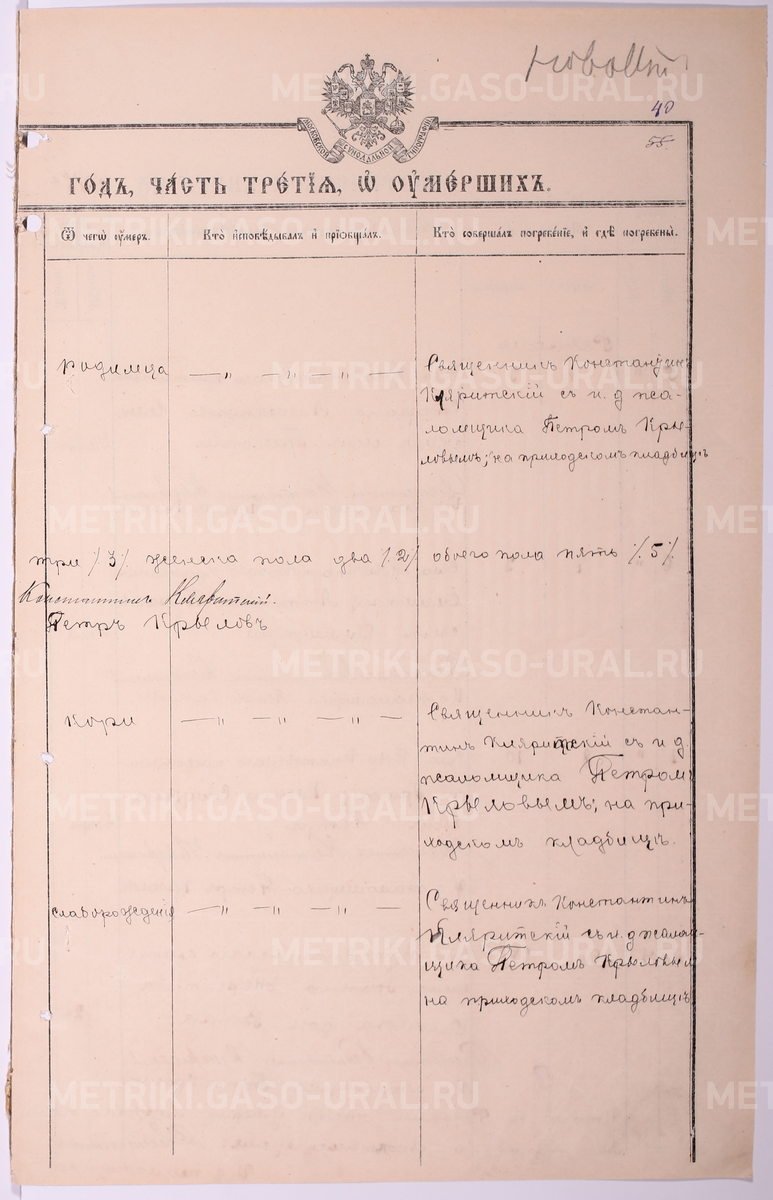 40
55
МОСКОВСКОЙ СѴНОДАЛЬНОЙ ТИПОГРАФІИ
ГО́ДЪ, ЧА́СТЬ ТРЕ́ТІѦ, Ѿ ОУ҆МЕ́РШИХЪ.
Ѿ чегѡ̀ ᲂу҆́меръ.
Кто̀ и҆сповѣ́дывалъ и҆ прїѡбща́лъ.
Кто̀ соверша́лъ погребе́нїе, и҆ гдѣ̀ погребены̀.
Родимца — „ — „ — „ —
Священникъ Константинъ
Кляритскій съ и. д. псаломщика Петромъ Крыловымъ; на приходскомъ кладбищѣ
три /3/ женска пола два /2/ обоего пола пять /5/
Константинъ Кляритскій.
Петръ Крыловъ
Кори — „ — „ — „ —
Священникъ Констан-
тинъ Кляритскій съ и. д.
псаломщика Петромъ
Крыловымъ; на при-
ходскомъ кладбищѣ.
слаборожденія — „ — „ — „ —
Священникъ Константинъ
Кляритскій съ и. д. псалом-
щика Петромъ Крыловым
на приходскомъ кладбищѣ
METRIKI.GASO-URAL.RU